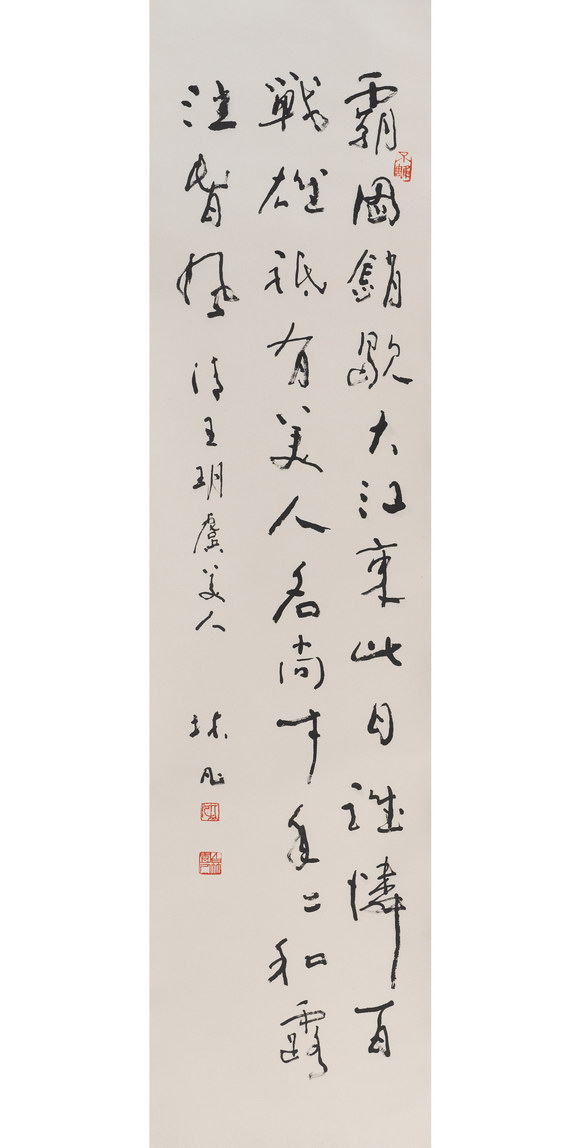 霸圖銷歇大江東此日誰憐百
戰雄祇有美人名尚在年〻和露
泣春風 清王玥虞美人 林凡